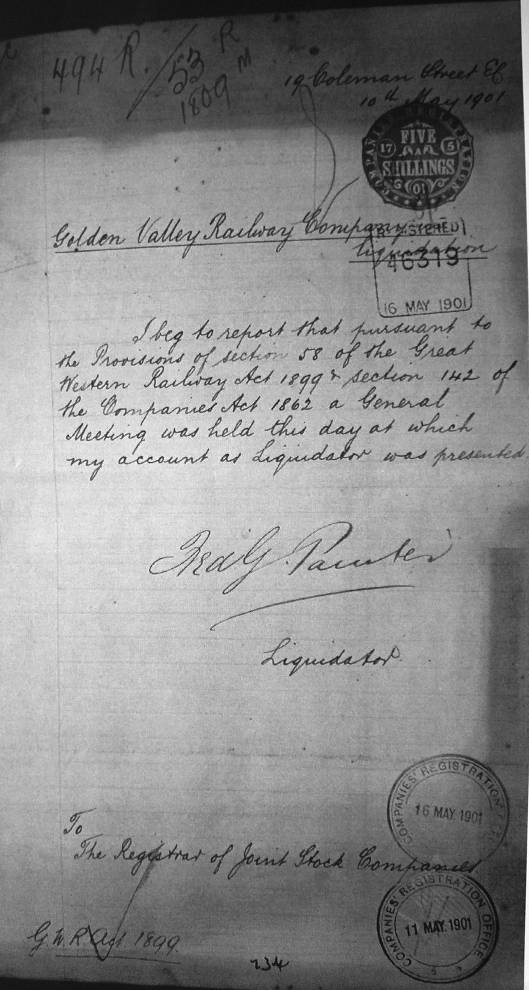 494 R. / 53 R
1809 M
19 Coleman Street EC
10th May 1901
COMPANIES REGISTRATION
FIVE
17 5
SHILLINGS
01
Golden Valley Railway Company
Liquidation
REGISTERED
46319
16 MAY 1901
I beg to report that pursuant to
the Provisions of section 58 of the Great
Western Railway Act 1899 & section 142 of
the Companies Act 1862 a General
Meeting was held this day at which
my account as Liquidator was presented.
Fred G. Painter
Liquidator
COMPANIES' REGISTRATION
16 MAY 1901
To
The Registrar of Joint Stock Companies
COMPANIES' REGISTRATION OFFICE
11 MAY 1901
G.W.R. Act 1899
234